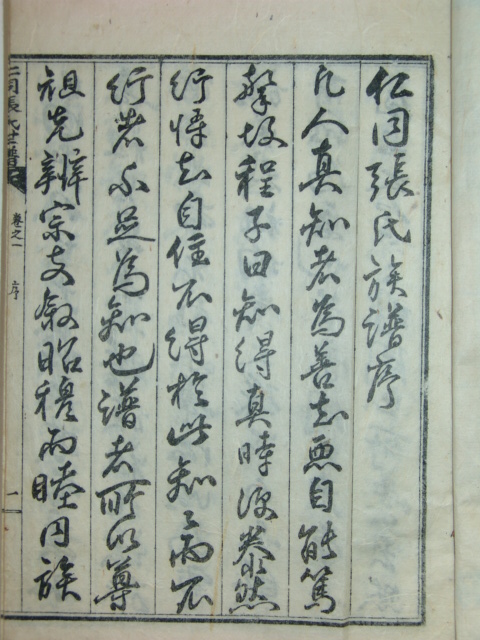 仁同張氏族譜序
凡人真知者為善去惡自能篤
摯故程子曰知得真時便泰然
行將去自住不得於此知之而不
行者不足為知也譜者所以尊
祖先辨宗支叙昭穆而睦同族
仁同張氏世譜 卷之一 序 一